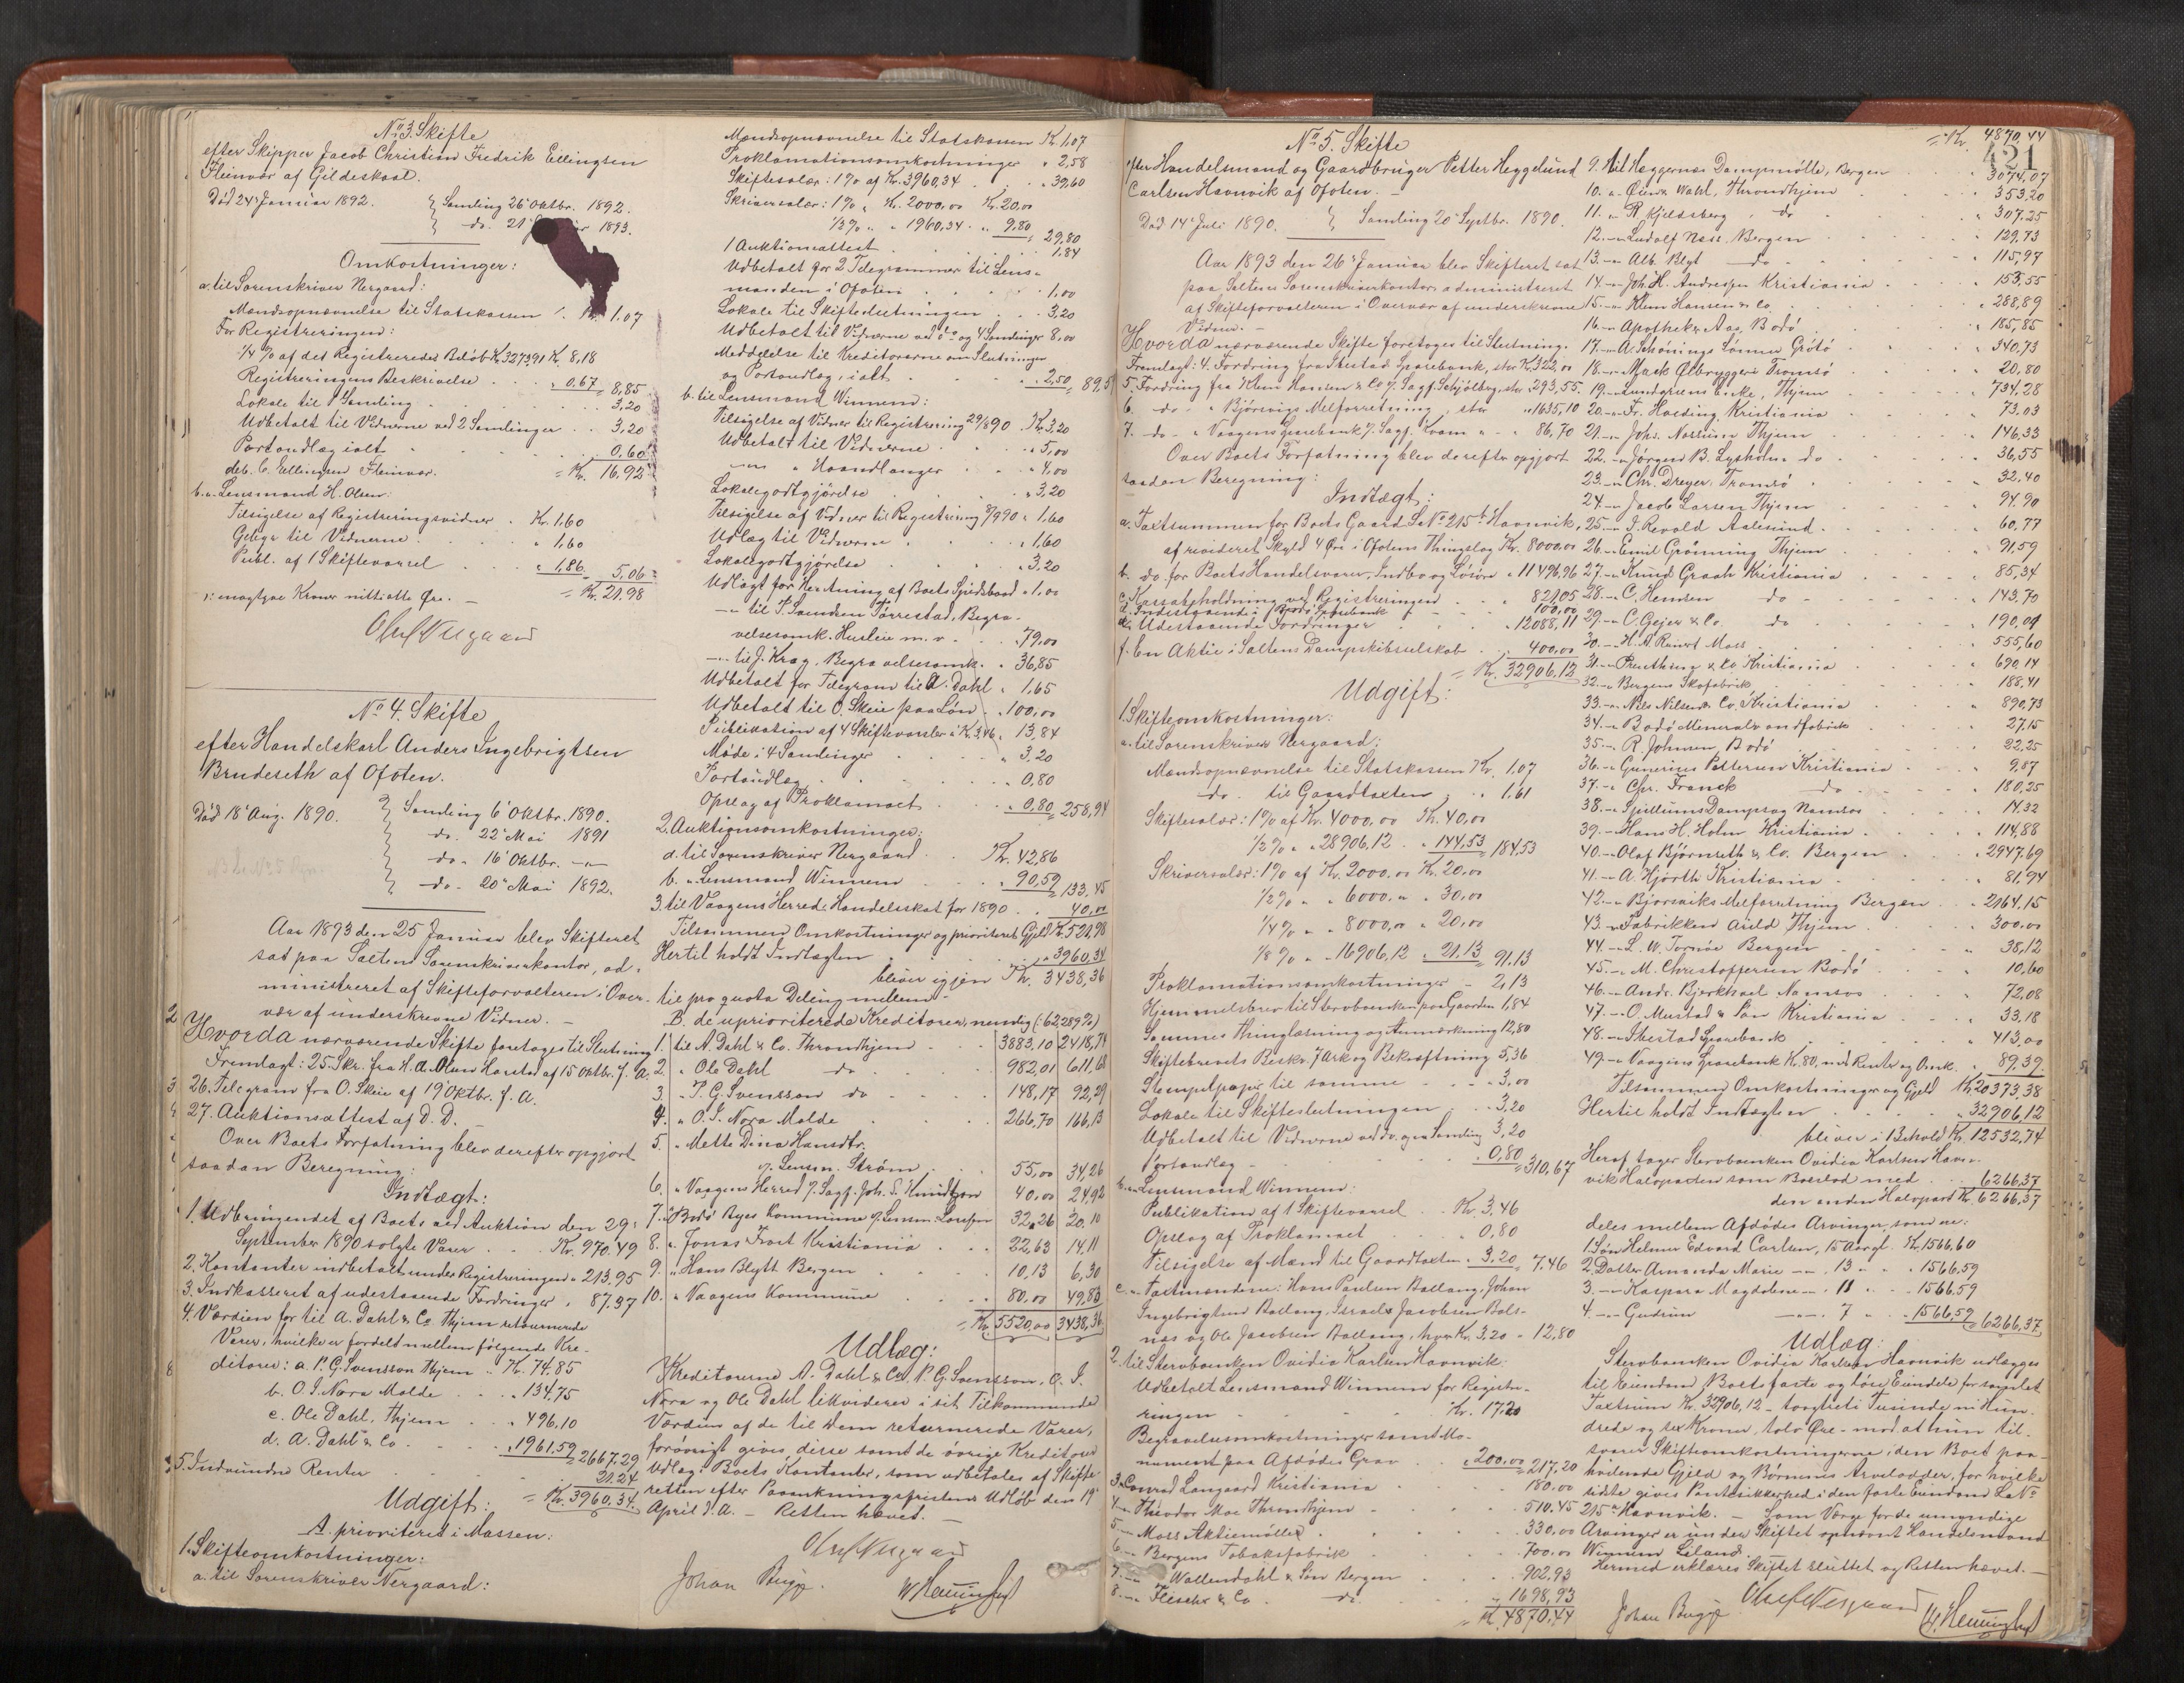 No 3. Skifte
efter Skipper Jacob Christian Fredrik Ellingsen
Fleinvær af Gildeskaal.
Død 24' Januar 1892. Samling 26' Oktbr. 1892.
do. 21' 1893.
Omkostninger:
a. til Sorenskriver Nergaard:
Mandsopnævnelse til Statskassen Kr. 1.07
For Registreringen:
1/4 % af det Registreredes Beløb Kr. 3273,91 K. 8,18
Registreringens Beskrivelse " 0.67 = 8,85
Lokale til 1 Samling 3,20
Udbetalt til Vidnerne ved 2 Samlinger 3.20
Portoudlæg ialt 0.60
deb. C. Ellingsen Fleinvær. = Kr. 16.92
b. " Lensmand H. Olsen:
Tilsigelse af Registreringsvidner Kr. 1.60
Gebyr til Vidnerne " 1,60
Publ. af 1 Skiftevarsel " 1,86 5,06
= Kr. 21.98
: enogtyve Kroner nittiotte Øre. —
Oluf Nergaard
No 4. Skifte
efter Handelskarl Anders Ingebrigtsen
Brudeseth af Ofoten.
Død 18' Aug. 1890. Samling 6' Oktbr. 1890.
do. 22' Mai 1891
do - 16' Oktbr. —
do - 20' Mai 1892.
Aar 1893 den 25 Januar blev Skifteret
sat paa Saltens Sorenskriverkontor, ad-
ministreret af Skifteforvalteren i Over-
vær af underskrevne Vidner. —
Hvorda nærværende Skifte foretoges til Slutning
Fremlagt: 25. Skr. fra H. A. Olsen Harstad af 15 Oktbr. f. A.
26. Telegram fra O. Skeie af 19' Oktbr. f. A.
27. Auktionsattest af D. D.
Over Boets Forfatning blev derefter opgjort
saadan Beregning:
Indtægt:
1. Udbringendet af Boets ved Auktion den 29'
September 1890 solgte Varer Kr. 970.49
2. Kontanter indbetalt under Registreringen " 213.95
3. Indkasseret af udestaaende Fordringer " 87.37
4. Værdien for til A. Dahl & Co Thjem returnerede
Varer, hvilke er fordelt mellem følgende Kre-
ditorer: a. P. G. Svensson Thjem Kr. 74.85
b. O. J. Nora Molde " 134,75
c. Ole Dahl, Thjem " 496,10
d. A. Dahl & Co " 1961,59 = 2667.29
5. Indvundne Renter 21.24
= Kr. 3960.34.
Udgift:
A. prioriteret i Massen:
1. Skifteomkostninger:
a. til Sorenskriver Nergaard:
Mandsopnævnelse til Statskassen Kr. 1,07
Proklamationsomkostninger " 2,58
Skiftesalær: 1 % af Kr. 3960,34 " 39,60
Skriversalær: 1 % " Kr. 2000,00 Kr. 20,00
1/2 % " " 1960,34 " 9.80 = 29,80
1 Auktionsattest 1,84
Udbetalt for 2 Telegrammer til Lens-
manden i Ofoten 1,00
Lokale til Skifteslutningen 3,20
Udbetalt til Vidnerne ved do og 4 Samlinger 8,00
Meddelelse til Kreditorerne om Slutningen
og Portoudlæg, ialt 2,50 = 89,59
b. til Lensmand Winnem:
Tilsigelse af Vidner til Registrering 29/8 90 Kr. 3.20
Udbetalt til Vidnerne " 5,00
— " Haandlanger " 4,00
Lokalegodtgjørelse " 3,20
Tilsigelse af Vidner til Registrering 9/9 90 " 1,60
Udlæg til Vidnerne " 1,60
Lokalegodtgjørelse " 3.20
Udlagt for Hentning af Boets Spidsbaad " 1,00
— til P. Svendsen Tørrestad, Begra-
velsesomk. Husleie m. v. " 79,00
— til J. Krag, Begravelsesomk. " 36,85
Udbetalt for Telegram til A. Dahl " 1,65
Udbetalt til O. Skeie paa Løn " 100,00
Publikation af 4 Skiftevarsler à Kr. 3.46 " 13,84
Møde i 4 Samlinger " 3.20
Portoudlæg " 0,80
Opslag af Proklamaet " 0,80 = 258,94
2. Auktionsomkostninger:
a. til Sorenskriver Nergaard Kr. 42,86
b. " Lensmand Winnem " 90,59 = 133,45
3. til Vaagens Herred, Handelsskat for 1890 40,00
Tilsammen Omkostninger og prioriteret Gjeld Kr. 521,98
Hertil holdt Indtægten " 3960,34
bliver igjen Kr. 3438,36
til pro quota Deling mellem
B. de uprioriterede Kreditorer, nemlig (: 62,289 %)
1. til A. Dahl & Co. Throndhjem 3883.10 2418,74
2. " Ole Dahl do 982,01 611,68
3. " P. G. Svensson do 148,17 92,29
4. " O. J. Nora Molde 266,70 166,13
5. " Mette Dina Hansdtr.
v. Lensm. Strøm 55,00 34,26
6. " Vaagens Herred v. Sagf. Joh. S. Knudtzon 40,00 24,92
7. " Bodø Byes Kommune v. Lensm. Lorentzen 32,26 20,10
8. " Jonas Frost Kristiania 22,63 14,11
9. " Hans Blytt Bergen 10,13 6,30
10. " Vaagens Kommune 80,00 49,83
= Kr. 5520,00 3438,36
Udlæg:
Kreditorerne A. Dahl & Co, P. G. Svensson, O. J.
Nora og Ole Dahl likviderer i sit Tilkommende
Værdien af de til dem returnerede Varer,
forøvrigt gives disse samt de øvrige Kreditorer
Udlæg i Boets Kontanter, som udbetales af Skifte-
retten efter Paaankningsfristens Udløb den 19'
April d. A. — Retten hævet. —
Oluf Nergaard
Johan Bugge.
421
No 5. Skifte
efter Handelsmand og Gaardbruger Petter Heggelund
Carlsen Havnvik af Ofoten. —
Død 14' Juli 1890. Samling 20' Septbr. 1890.
Aar 1893 den 26' Januar blev Skifteret sat
paa Saltens Sorenskriverkontor, administreret
af Skifteforvalteren i Overvær af underskrevne
Vidner. —
Hvorda nærværende Skifte foretoges til Slutning.
Fremlagt: 4. Fordring fra Ibestad Sparebank, stor Kr. 322,00
5. Fordring fra Klem Hansen & Co v. Sagf. Schjølberg, stor 293,55.
6. do " Bjørsvigs Melforretning, stor " 1635,10
7. do " Vaagens Sparebank v. Sagf. Kvam " " 86,70
Over Boets Forfatning blev derefter opgjort
saadan Beregning:
Indtægt:
a. Taxtsummen for Boets Gaard L. No 215 b Havnvik,
af revideret Skyld 4 Øre i Ofotens Thinglag Kr. 8000,00
b. do for Boets Handelsvarer, Indbo og Løsøre " 11496,96
c. Kassabeholdning ved Registreringen " 821,05
d. Indestaaende i Bodø Sparebank 100,00
e. Udestaaende Fordringer " 12088,11
f. En Aktie i Saltens Dampskibsselskab 400,00
= Kr. 32906,12
Udgift:
1. Skifteomkostninger:
a. til Sorenskriver Nergaard:
Mandsopnævnelse til Statskassen Kr. 1,07
do. til Gaardtaxten " 1,61
Skiftesalær: 1 % af Kr. 4000,00 Kr. 40,00
1/2 % " " 28906,12 " 144,53 = 184,53
Skriversalær: 1 % af Kr. 2000,00 Kr. 20,00
1/2 % " " 6000,00 " 30,00
1/4 % " " 8000,00 " 20,00
1/8 % " " 16906,12 " 21.13 = 91.13
Proklamationsomkostninger - 2,13
Hjemmelsbrev til Stervboenken paa Gaarden 1,84
Sammes Thinglæsning og Anmærkning 12,80
Skiftebrevets Beskr. 7 Ark og Bekræftning 5,36
Stempelpapir til samme 3,00
Lokale til Skifteslutningen 3,20
Udbetalt til Vidnerne ved do. og en Samling 3,20
Portoudlæg 0,80 = 310,67
b. " Lensmand Winnem:
Publikation af 1 Skiftevarsel Kr. 3.46
Opslag af Proklamaet " 0,80
Tilsigelse af Mænd til Gaardtaxten " 3,20 = 7.46
c. " Taxtmændene: Hans Paulsen Ballang, Johan
Ingebrigtsen Ballang, Israel Jacobsen Bals-
næs og Ole Jacobsen Ballang, hver Kr. 3,20 = 12,80
2. til Stervboenken Ovidia Karlsen Havnvik:
Udbetalt Lensmand Winnem for Registre-
ringen Kr. 17.20
Begravelsesomkostninger samt Mo-
nument paa Afdødes Grav " 200,00 = 217,20
3. " Conrad Langaard Kristiania 180.00
4. " Theodor Moe Throndhjem 510.45
5. " Moss Aktiemøller 330,00
6. " Bergens Tobaksfabrik 700.00
7. " Wallendahl & Søn Bergen 902,93
8. " Flescher & Co. do. 1698,93
= Kr. 4870.44
= Kr. 4870,44
9. til Vaggernæs Dampmølle, Bergen 3074,07
10. " Wahl, Throndhjem 353,20
11. " R. Kjeldsberg, do 307.25
12. " Ludolf Næss, Bergen 129,73
13. " Alb. Blyt do 115,97
14. " Joh. H. Andresen Kristiania 153,55
15. " Klem Hansen & Co 288,89
16. " Apotheker Aas Bodø 185,85
17. " A. Schønings Sønner Grøtø 340,73
18. " Mack Ølbryggeri Tromsø 20,80
19. " Lundgreens Enke, Thjem 734,28
20. " Fr. Hoeding Kristiania 73,03
21. " Johs. Narrum Thjem 146,33
22. " Jørgen B. Lysholm do 36,55
23. " Chr. Dreyer, Tromsø 32,40
24. " Jacob Larsen Thjem 94.90
25. " J. Revold Aalesund 60,77
26. " Emil Grønning Thjem 91,59
27. " Knud Graah Kristiania 85,34
28. " C. Hensen do 143,70
29. " C. Geijer & Co. do 190,09
30. " H. A. Moss 555,60
31. " & Co Kristiania 690,14
32. " Bergens Skofabrik 188,41
33. " Nils Nilsen & Co, Kristiania 890,73
34. " Bodø Mineralvandfabrik 27,15
35. " R. Johnsen, Bodø 22,25
36. " Gunerius Pettersen Kristiania 9,87
37. " Chr. Franck do 180,25
38. " Spillums Dampsag Namsos 14.32
39. " Hans H. Holm Kristiania 114,88
40. " Olaf Bjørnseth & Co. Bergen 2947,69
41. " A. Hjorth Kristiania 81,94
42. " Bjørsviks Melforretning Bergen 2164.15
43. " Fabrikken Arild Thjem 300.00
44. " L. W. Tornøe Bergen 38,12
45. " M. Christoffersen Bodø 10,60
46. " Andr. Bjerkhoel Namsos 72,08
47. " O. Mustad & Søn Kristiania 33,18
48. " Ibestad Sparebank 413,00
49. " Vaagens Sparebank K. 80, med Renter og Omk. 89,39
Tilsammen Omkostninger og Gjeld Kr. 20373,38
Hertil holdt Indtægten " 32906,12
bliver i Behold Kr. 12532,74
Heraf tager Stervboenken Ovidia Karlsen Havn-
vik Halvparten som Boeslod med 6266,37
den anden Halvpart Kr. 6266,37
deles mellem Afdødes Arvinger, som er:
1. Søn Helmer Edvard Carlsen, 15 Aar gl. Kr. 1566,60
2. Datter Amanda Marie — 13 " " 1566,59
3. — Kaspara Magdalene — 11 " " 1566,59
4. — Gudrun — 7 " " 1566,59 = 6266,37
Udlæg:
Stervboenken Ovidia Karlsen Havnvik udlægges
til Eiendom Boets faste og løse Eiendele for samlet
Taxtsum Kr. 32906,12 - toogtreti Tusinde ni Hun-
drede og sex Kroner, tolv Øre - mod at hun til-
svarer Skifteomkostningerne, den Boet paa-
hvilende Gjeld og Børnenes Arvelodder, for hvilke
sidste gives Pantesikkerhed i den faste Eiendom L. No
215 b Havnvik. — Som Værge for de umyndige
Arvinger er under Skiftet opnævnt Handelsmand
Winnem Liland.
Hermed erklæres Skiftet sluttet og Retten hævet. —
Oluf Nergaard
Johan Bugge